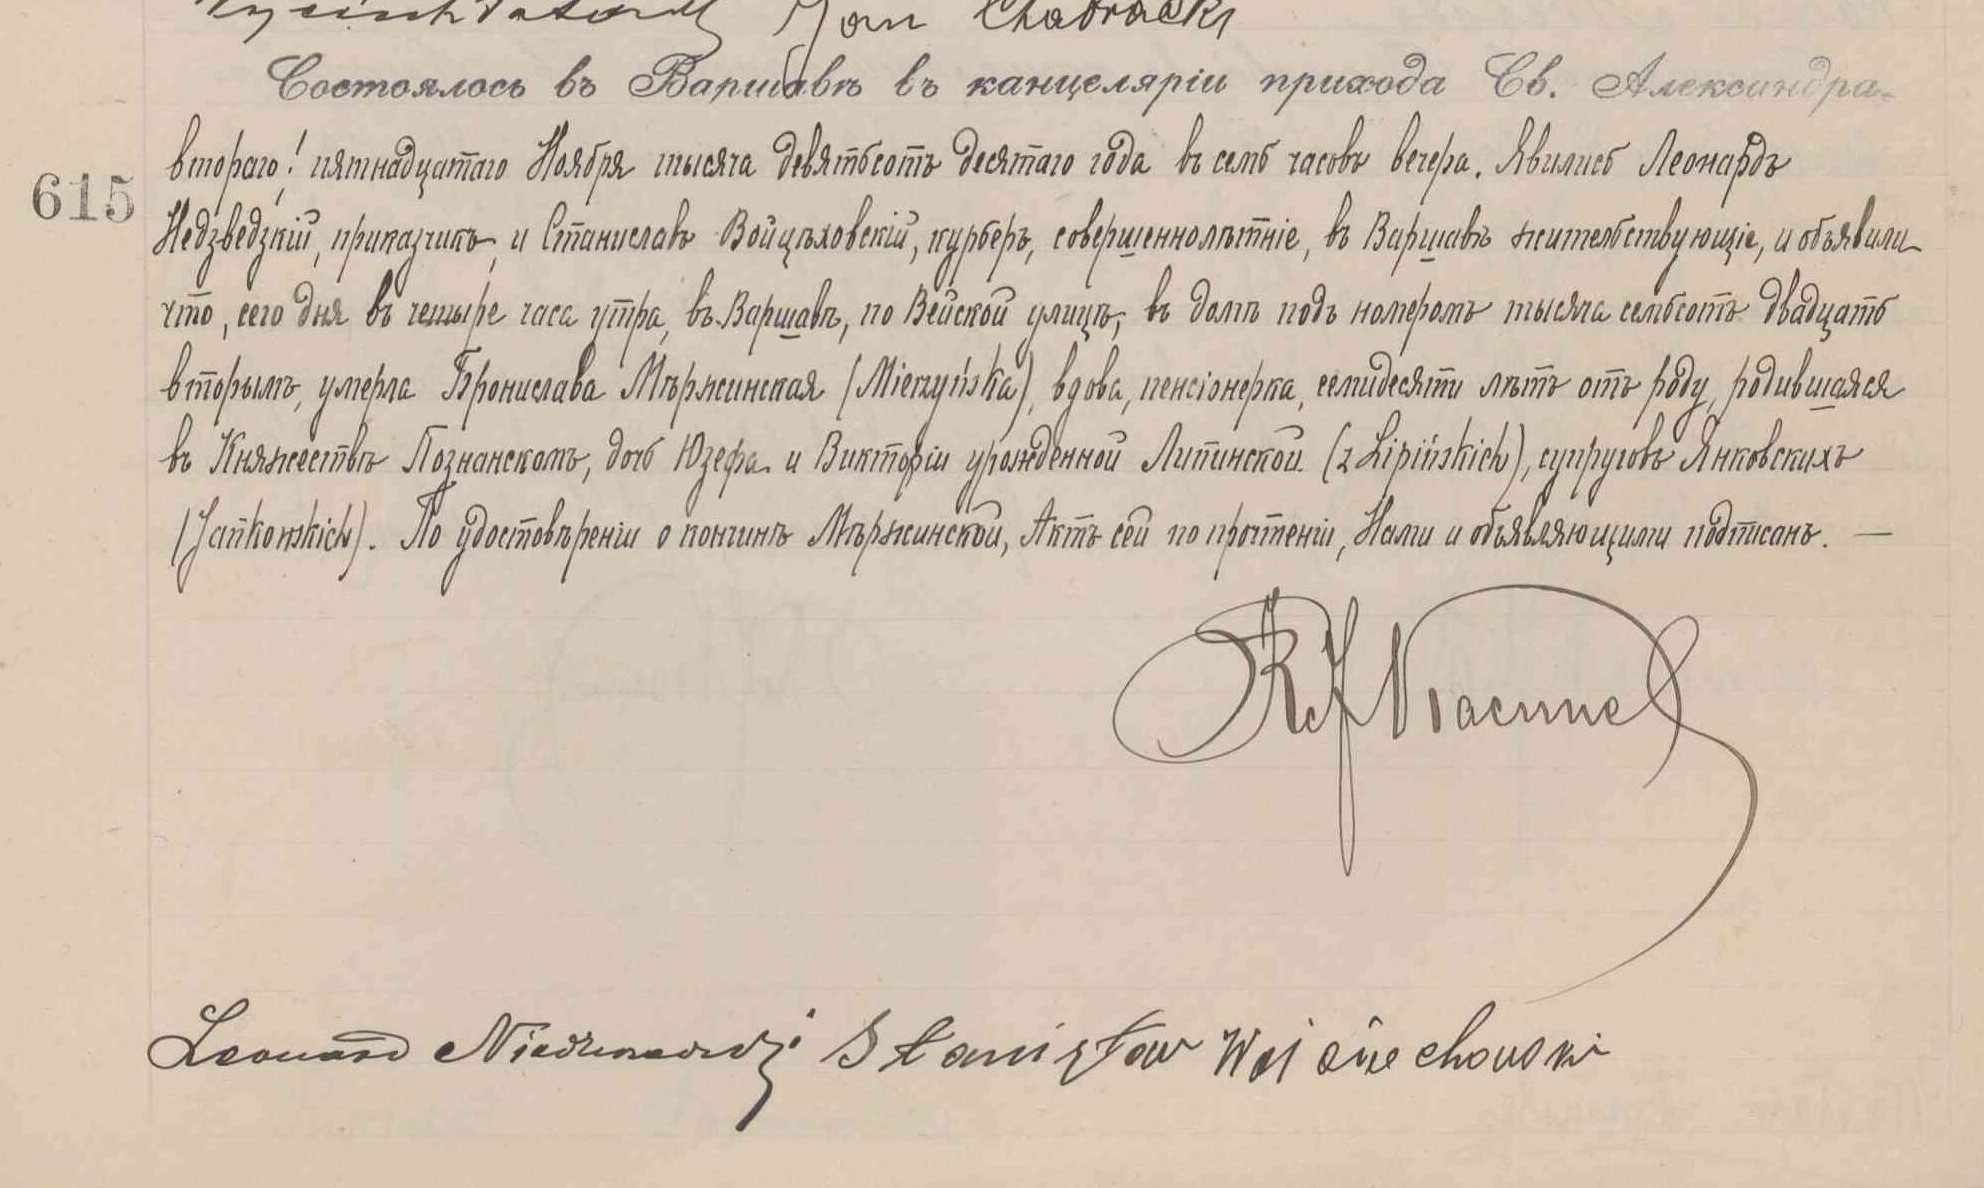 Jan Chabracki
Состоялось въ Варшавѣ въ канцеляріи прихода Св. Александра
втораго! пятнадцатаго Ноября тысяча девятьсотъ десятаго года въ семь часовъ вечера. Явились Леонардъ
615
Недзведзкій, приказчикъ, и Станиславъ Войцѣховскій, курьеръ, совершеннолѣтніе, въ Варшавѣ жительствующіе, и объявили
что, сего дня въ четыре часа утра, въ Варшавѣ, по Вейской улицѣ, въ домѣ подъ номеромъ тысяча семьсотъ двадцать
вторымъ, умерла Бронислава Мѣржинская (Mierzyńska), вдова, пенсіонерка, семидесяти лѣтъ отъ роду, родившаяся
въ Княжествѣ Познанскомъ, дочь Юзефа и Викторіи урожденной Липинской (z Lipińskich), супруговъ Янковскихъ
(Jańkowskich). По удостовѣреніи о кончинѣ Мѣржинской, Актъ сей по прочтеніи, Нами и объявляющими подписанъ. —
Leonard Niedzwiedzki Stanisław Wojciechowski